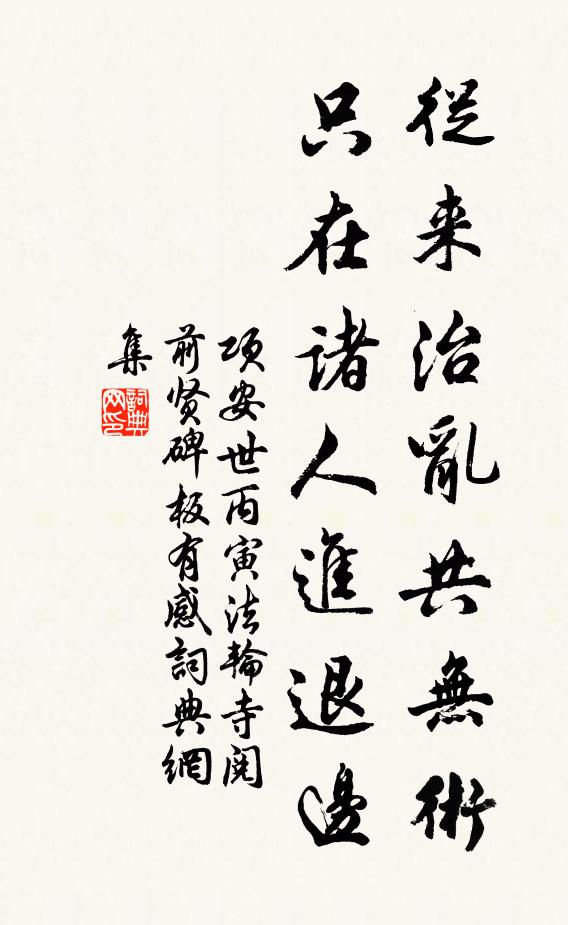 從来治亂共無術
只在諸人進退邊
項安世丙寅法輪寺閱
前贤碑板有感詞典網
集
詞典網印